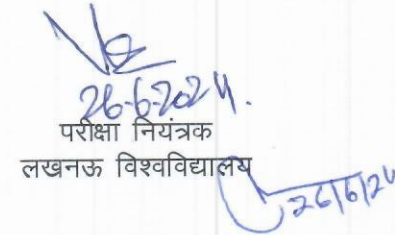 26-6-2024.
परीक्षा नियंत्रक
लखनऊ विश्वविद्यालय
26/6/24